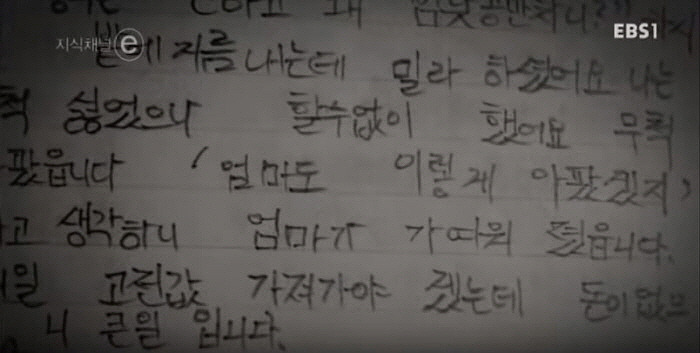 지식채널 e
EBS1
하고 왜
밭에 지름 내는데 밀라 하셨어요 나는
척 싫었으나 할수없이 했어요 무척
팠읍니다 '엄마도 이렇게 아팠겠지'
고 생각하니 엄마가 가여워 졌읍니다.
일 가져가야 겠는데 돈이없으
니 큰일 입니다.